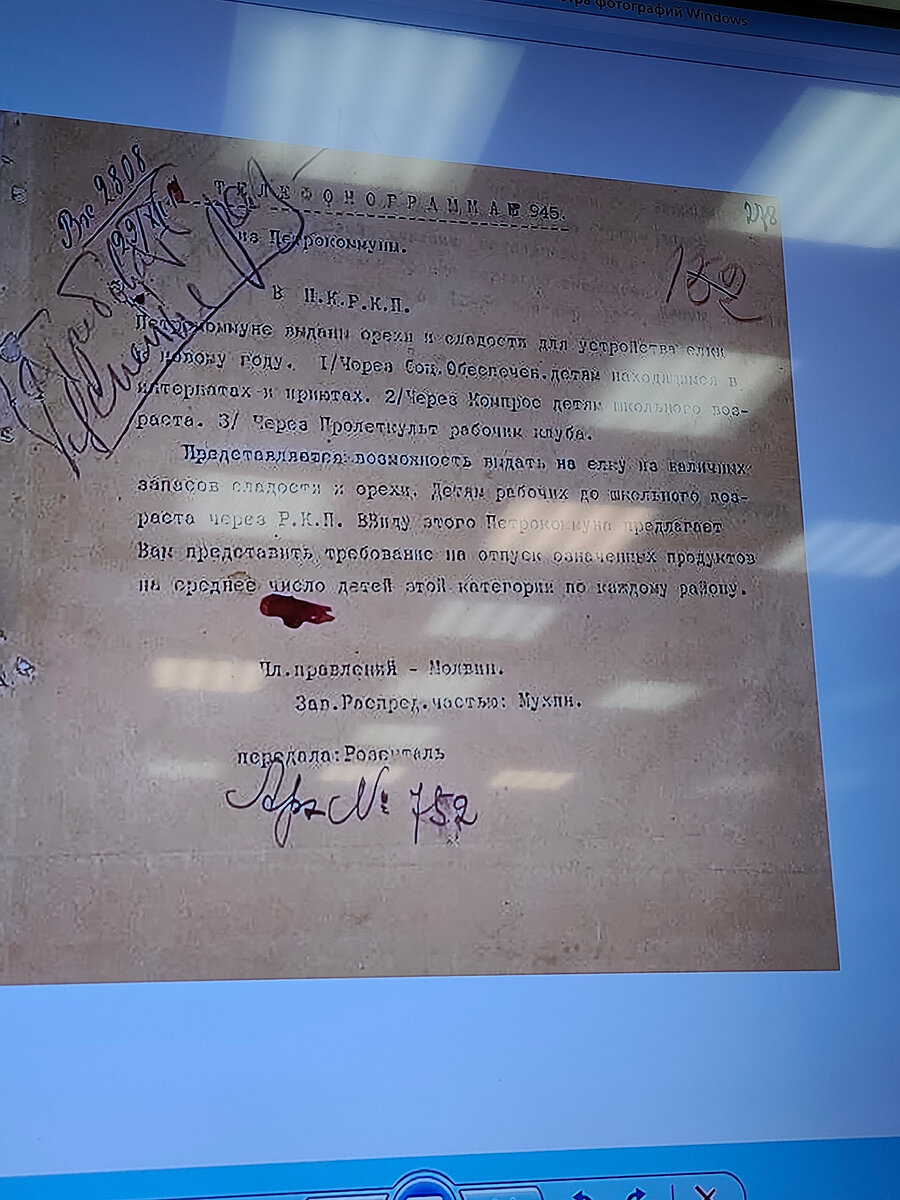 фотографий Windows
Вас 2808
238
ТЕЛЕФОНОГРАММА № 945.
из Петрокоммуни.
В П.К.Р.К.П.
Петрокоммуне выдани орехи и сладости для устройства елки
новому году. 1/Через Соц.Обеспечен.детям находящимся в
интернатах и приютах. 2/Через Компрос детям школьного воз-
раста. 3/ Через Пролеткульт рабочим клуба.
Представляется возможность выдать на елку из наличных
запасов сладости и орехи. Детям рабочих до школьного воз-
раста через Р.К.П. ВВиду этого Петрокоммуна предлагает
Вам представить требование на отпуск означенных продуктов
на среднее число детей этой категории по каждому району.
Чл.правлений - Молвин.
Зав.Распред.частью: Мухин.
передала:Розенталь
Арх № 752